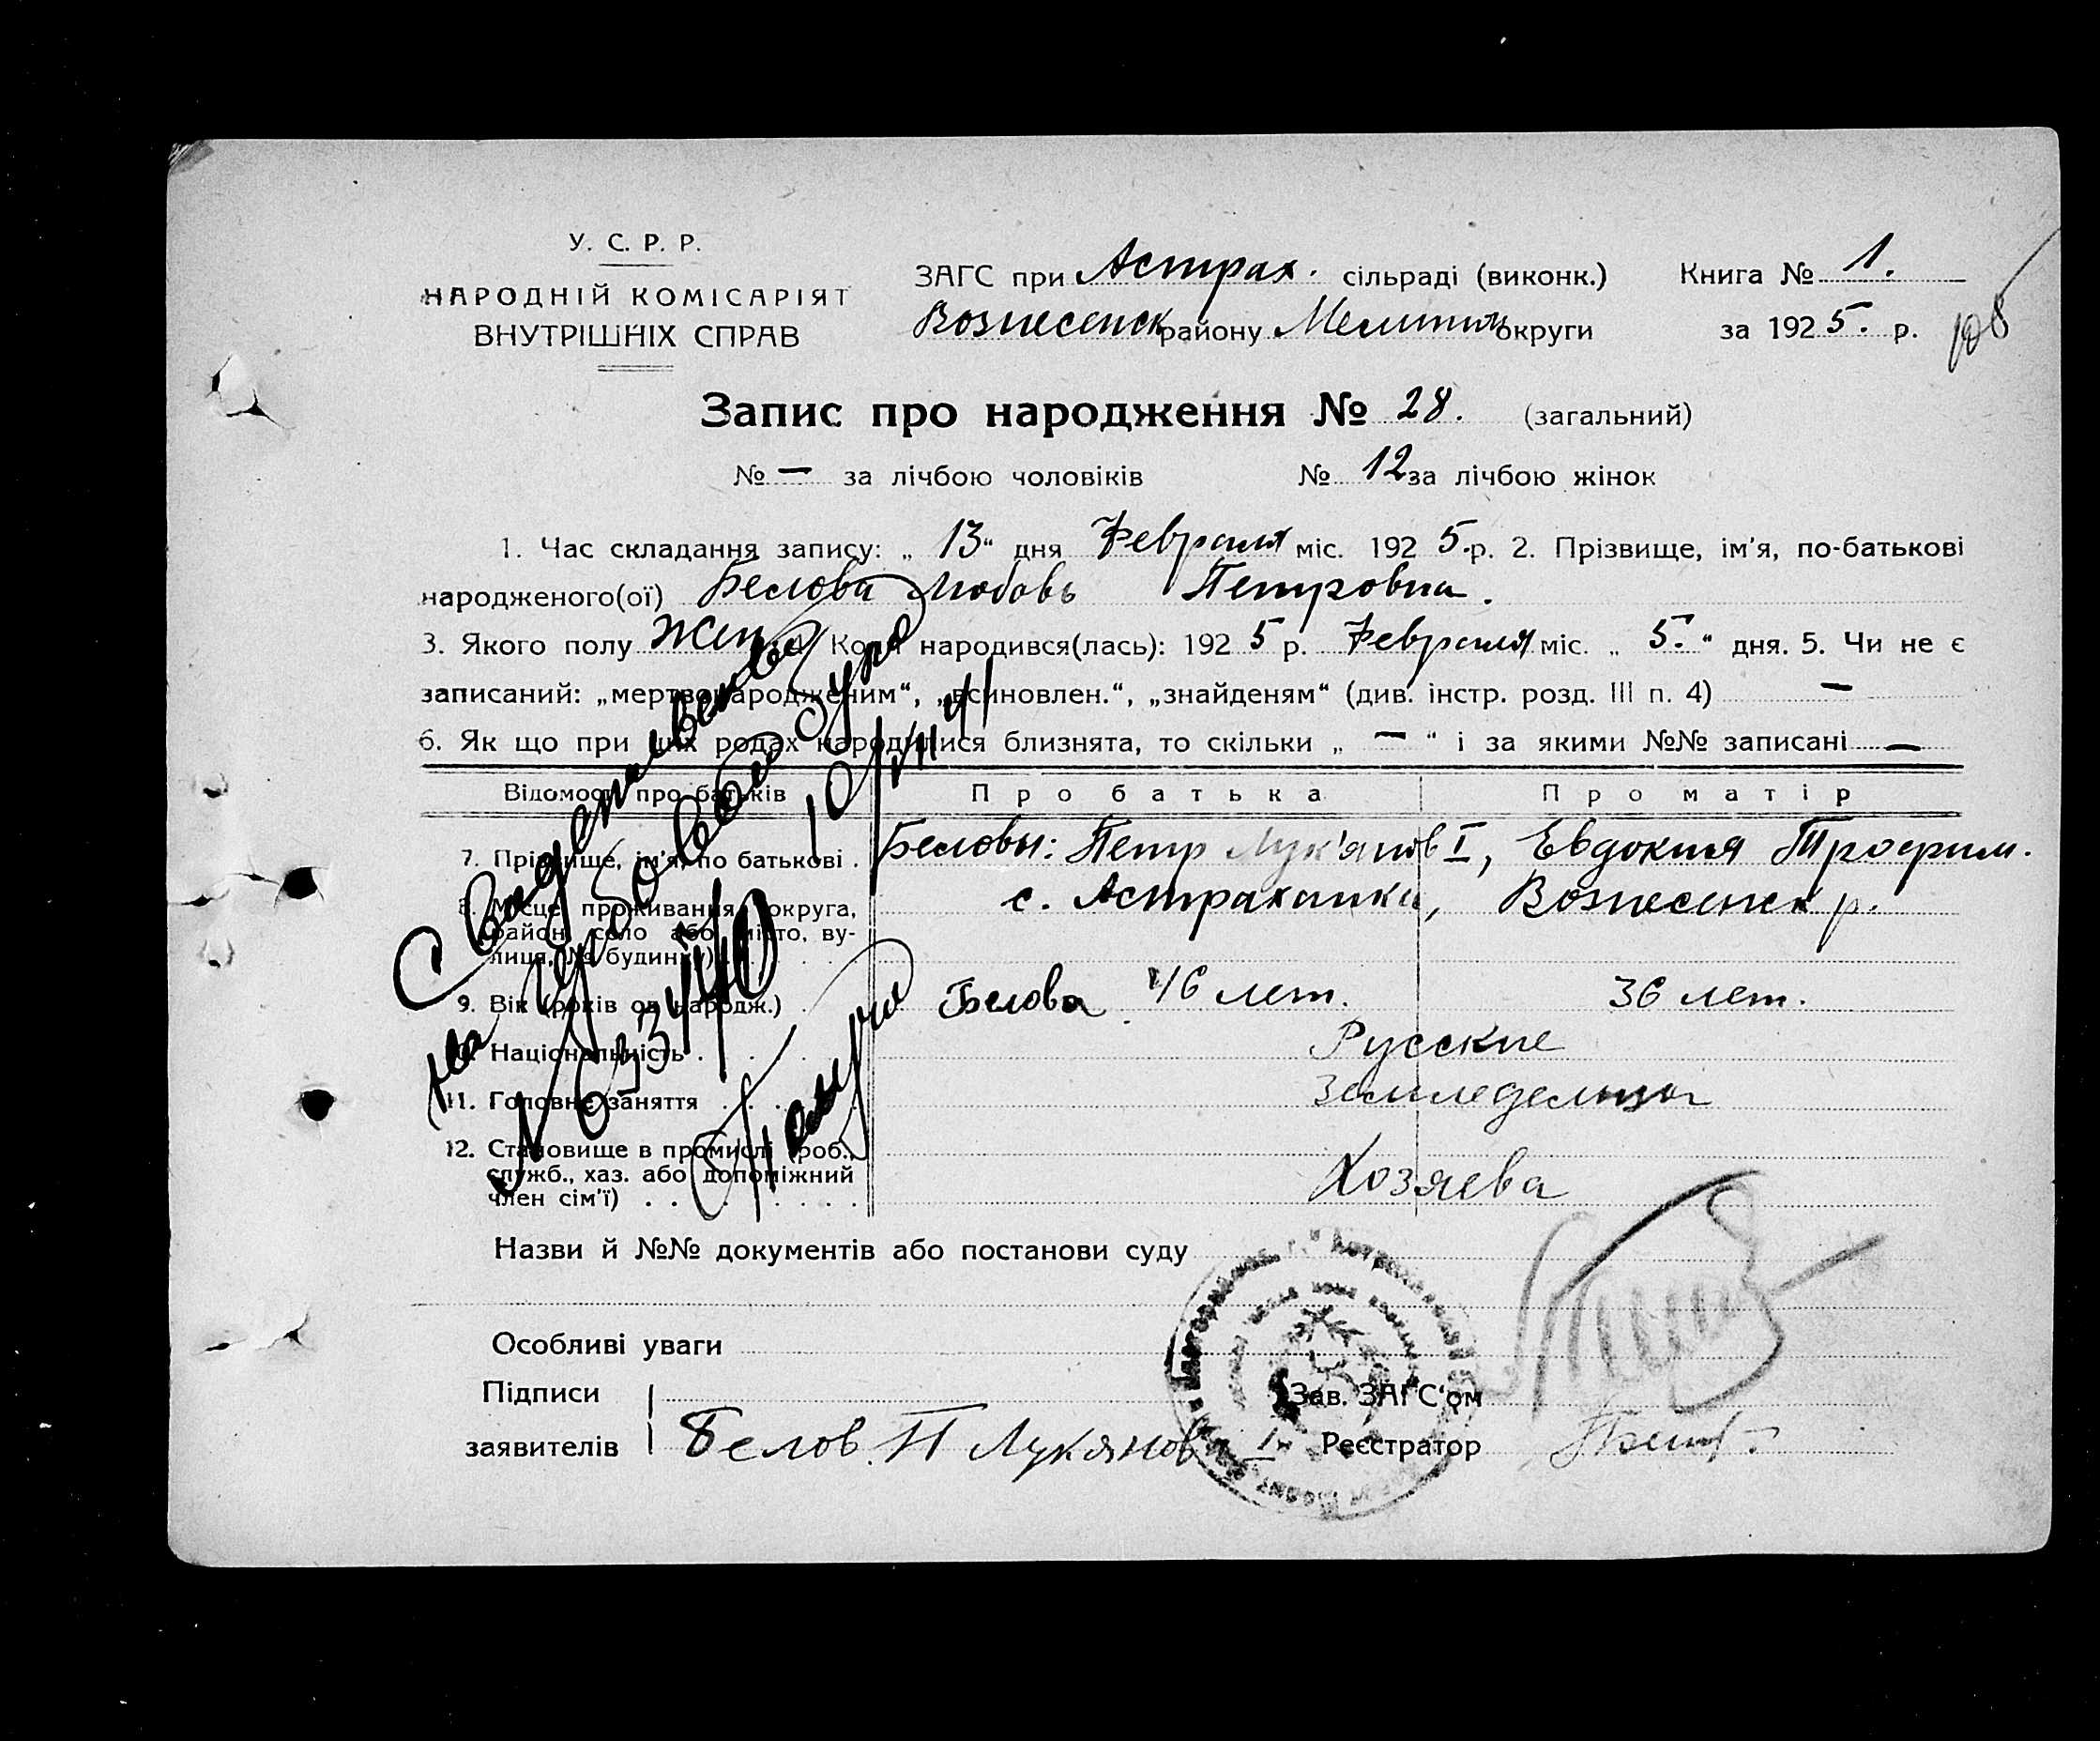 У. С. Р. Р.
НАРОДНІЙ КОМІСАРІЯТ
ВНУТРІШНІХ СПРАВ
ЗАГС при Астрах. сільраді (виконк.)
Вознесенск району Мелитип округи
Книга № 1.
за 1925. р.
108
Запис про народження № 28. (загальний)
№ — за лічбою чоловіків № 12 за лічбою жінок
1. Час складання запису: „ 13 “ дня Февраля міс. 1925. р. 2. Прізвище, ім'я, по-батькові
народженого(ої) Белова Любовь Петровна.
3. Якого полу Жен Коли народився(лась): 1925 р. Февраля міс. „ 5. “ дня. 5. Чи не є
записаний: „мертвонародженим“, „всиновлен.“, „знайденям“ (див. інстр. розд. III п. 4) —
6. Як що при цих родах народилися близнята, то скільки „ — “ і за якими №№ записані —
Відомости про батьків Про батька Про матір
7. Прізвище, ім'я, по батькові . Беловы: Петр Лук'янов I, Евдокия Трофим.
8. Місце проживання (округа, с. Астраханка, Вознесенск р.
район, село або місто, ву-
лиця, № будинку)
9. Вік (років од народж.) Белова 46 лет. 36 лет.
10. Національність . Русские
11. Головне заняття
12. Становище в промислі (роб., Хозяева
служб., хаз. або допоміжний
член сім'ї)
Свидетельство
на
10/VII 41
Назви й №№ документів або постанови суду
Особливі уваги
Підписи
заявителів Белов. П Лукянов I
Зав. ЗАГС'ом
Реєстратор